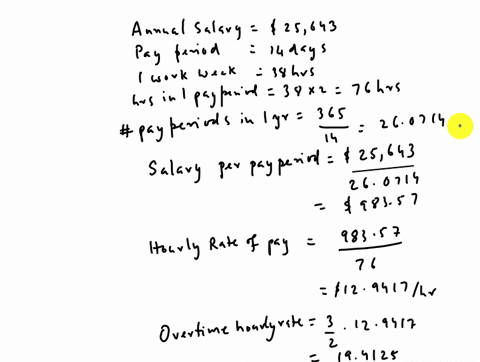 Annual Salary = $ 25,643
Pay period = 14 days
1 work week = 38 hrs
hrs in 1 pay period = 38 × 2 = 76 hrs
# pay periods in 1 yr = 365 / 14 = 26.0714
Salary per pay period = $ 25,643 / 26.0714
= $ 983.57
Hourly Rate of pay = 983.57 / 76
= $12.9417/hr
Overtime hourly rate = 3/2 . 12.9417
= 19.4125